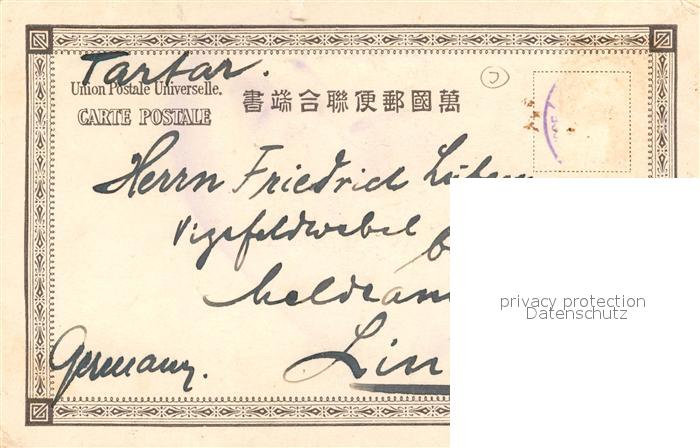 Tartar.
Union Postale Universelle.
CARTE POSTALE
書端合聯便郵國萬
フ
Herrn Friedrich
Vizefeldwebel
Lin
Germany.
privacy protection
Datenschutz